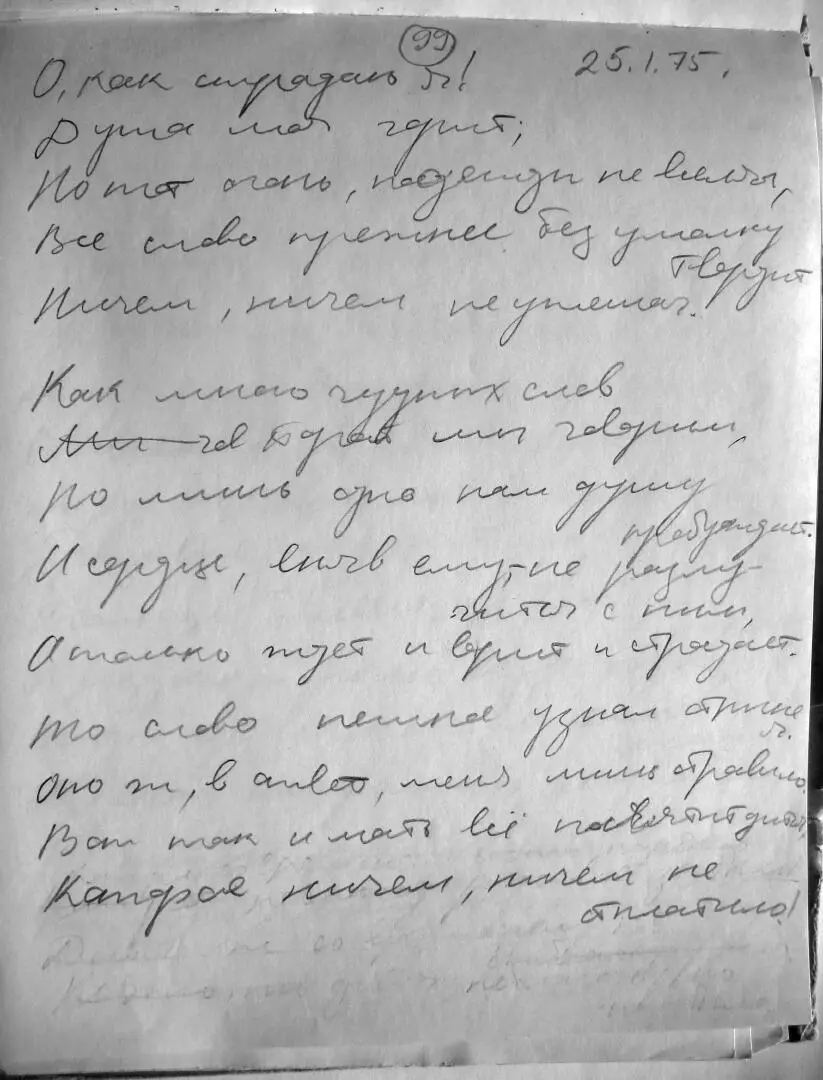 99
25.1.75.
О, как страдаю я!
Душа моя горит;
Но тот огонь, надежды не
Все слово прежнее без умолку
твердит
Ничем, ничем не утешая.
Как много чудных слов
Мы гов порой мы говорим,
Но лишь одно нам душу
пробуждает.
И сердце, вняв ему, не разлу-
чится с ним,
А только ждет и верит и страдает.
То слово нежное узнал отныне
я.
Оно ж, в ответ, меня лишь отравило.
Вот так и мать всё посвятит дитя,
Которое ничем, ничем не
отплатило!